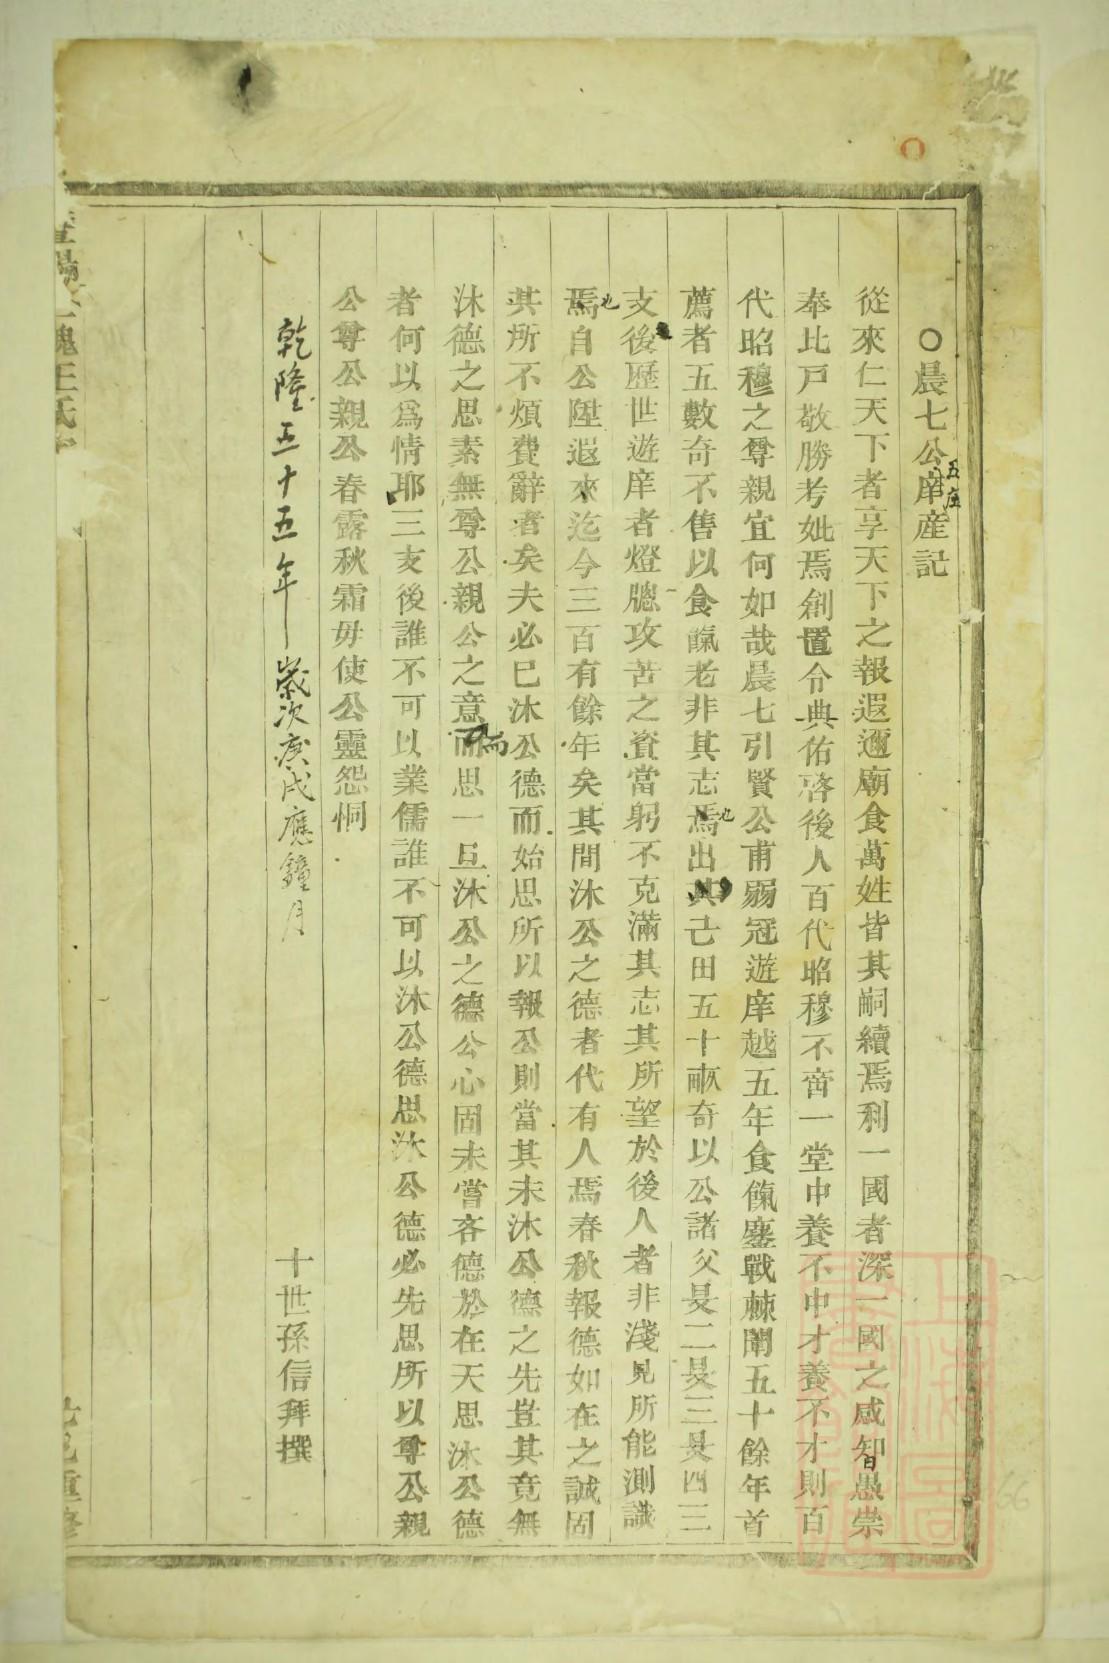 ○晨七公庠産記
五庄
從來仁天下者享天下之報遐邇廟食萬姓皆其嗣續焉利一國者深一國之感智愚崇
奉比戸敬勝考妣焉創置令典佑啓後人百代昭穆不啻一堂中養不中才養不才則百
代昭穆之尊親宜何如哉晨七引賢公甫弱冠遊庠越五年食餼鏖戰棘闈五十餘年首
薦者五數奇不售以食餼老非其志焉也出其己田五十畝奇以公諸父旻二旻三旻四三
支後歷世遊庠者燈牕攻苦之資當躬不克滿其志其所望於後人者非淺見所能測識
焉也自公陞遐來迄今三百有餘年矣其間沐公之德者代有人焉春秋報德如在之誠固
其所不煩費辭者矣夫必巳沐公德而始思所以報公則當其未沐公德之先豈其竟無
沐德之思素無尊公親公之意而而思一旦沐公之德公心固未嘗吝德於在天思沐公德
者何以爲情耶三支後誰不可以業儒誰不可以沐公德思沐公德必先思所以尊公親
公尊公親公春露秋霜毋使公靈怨恫
乾隆五十五年歲次庚戌應鐘月
十世孫信拜撰
槐王氏
重修
上海圖書館藏
66